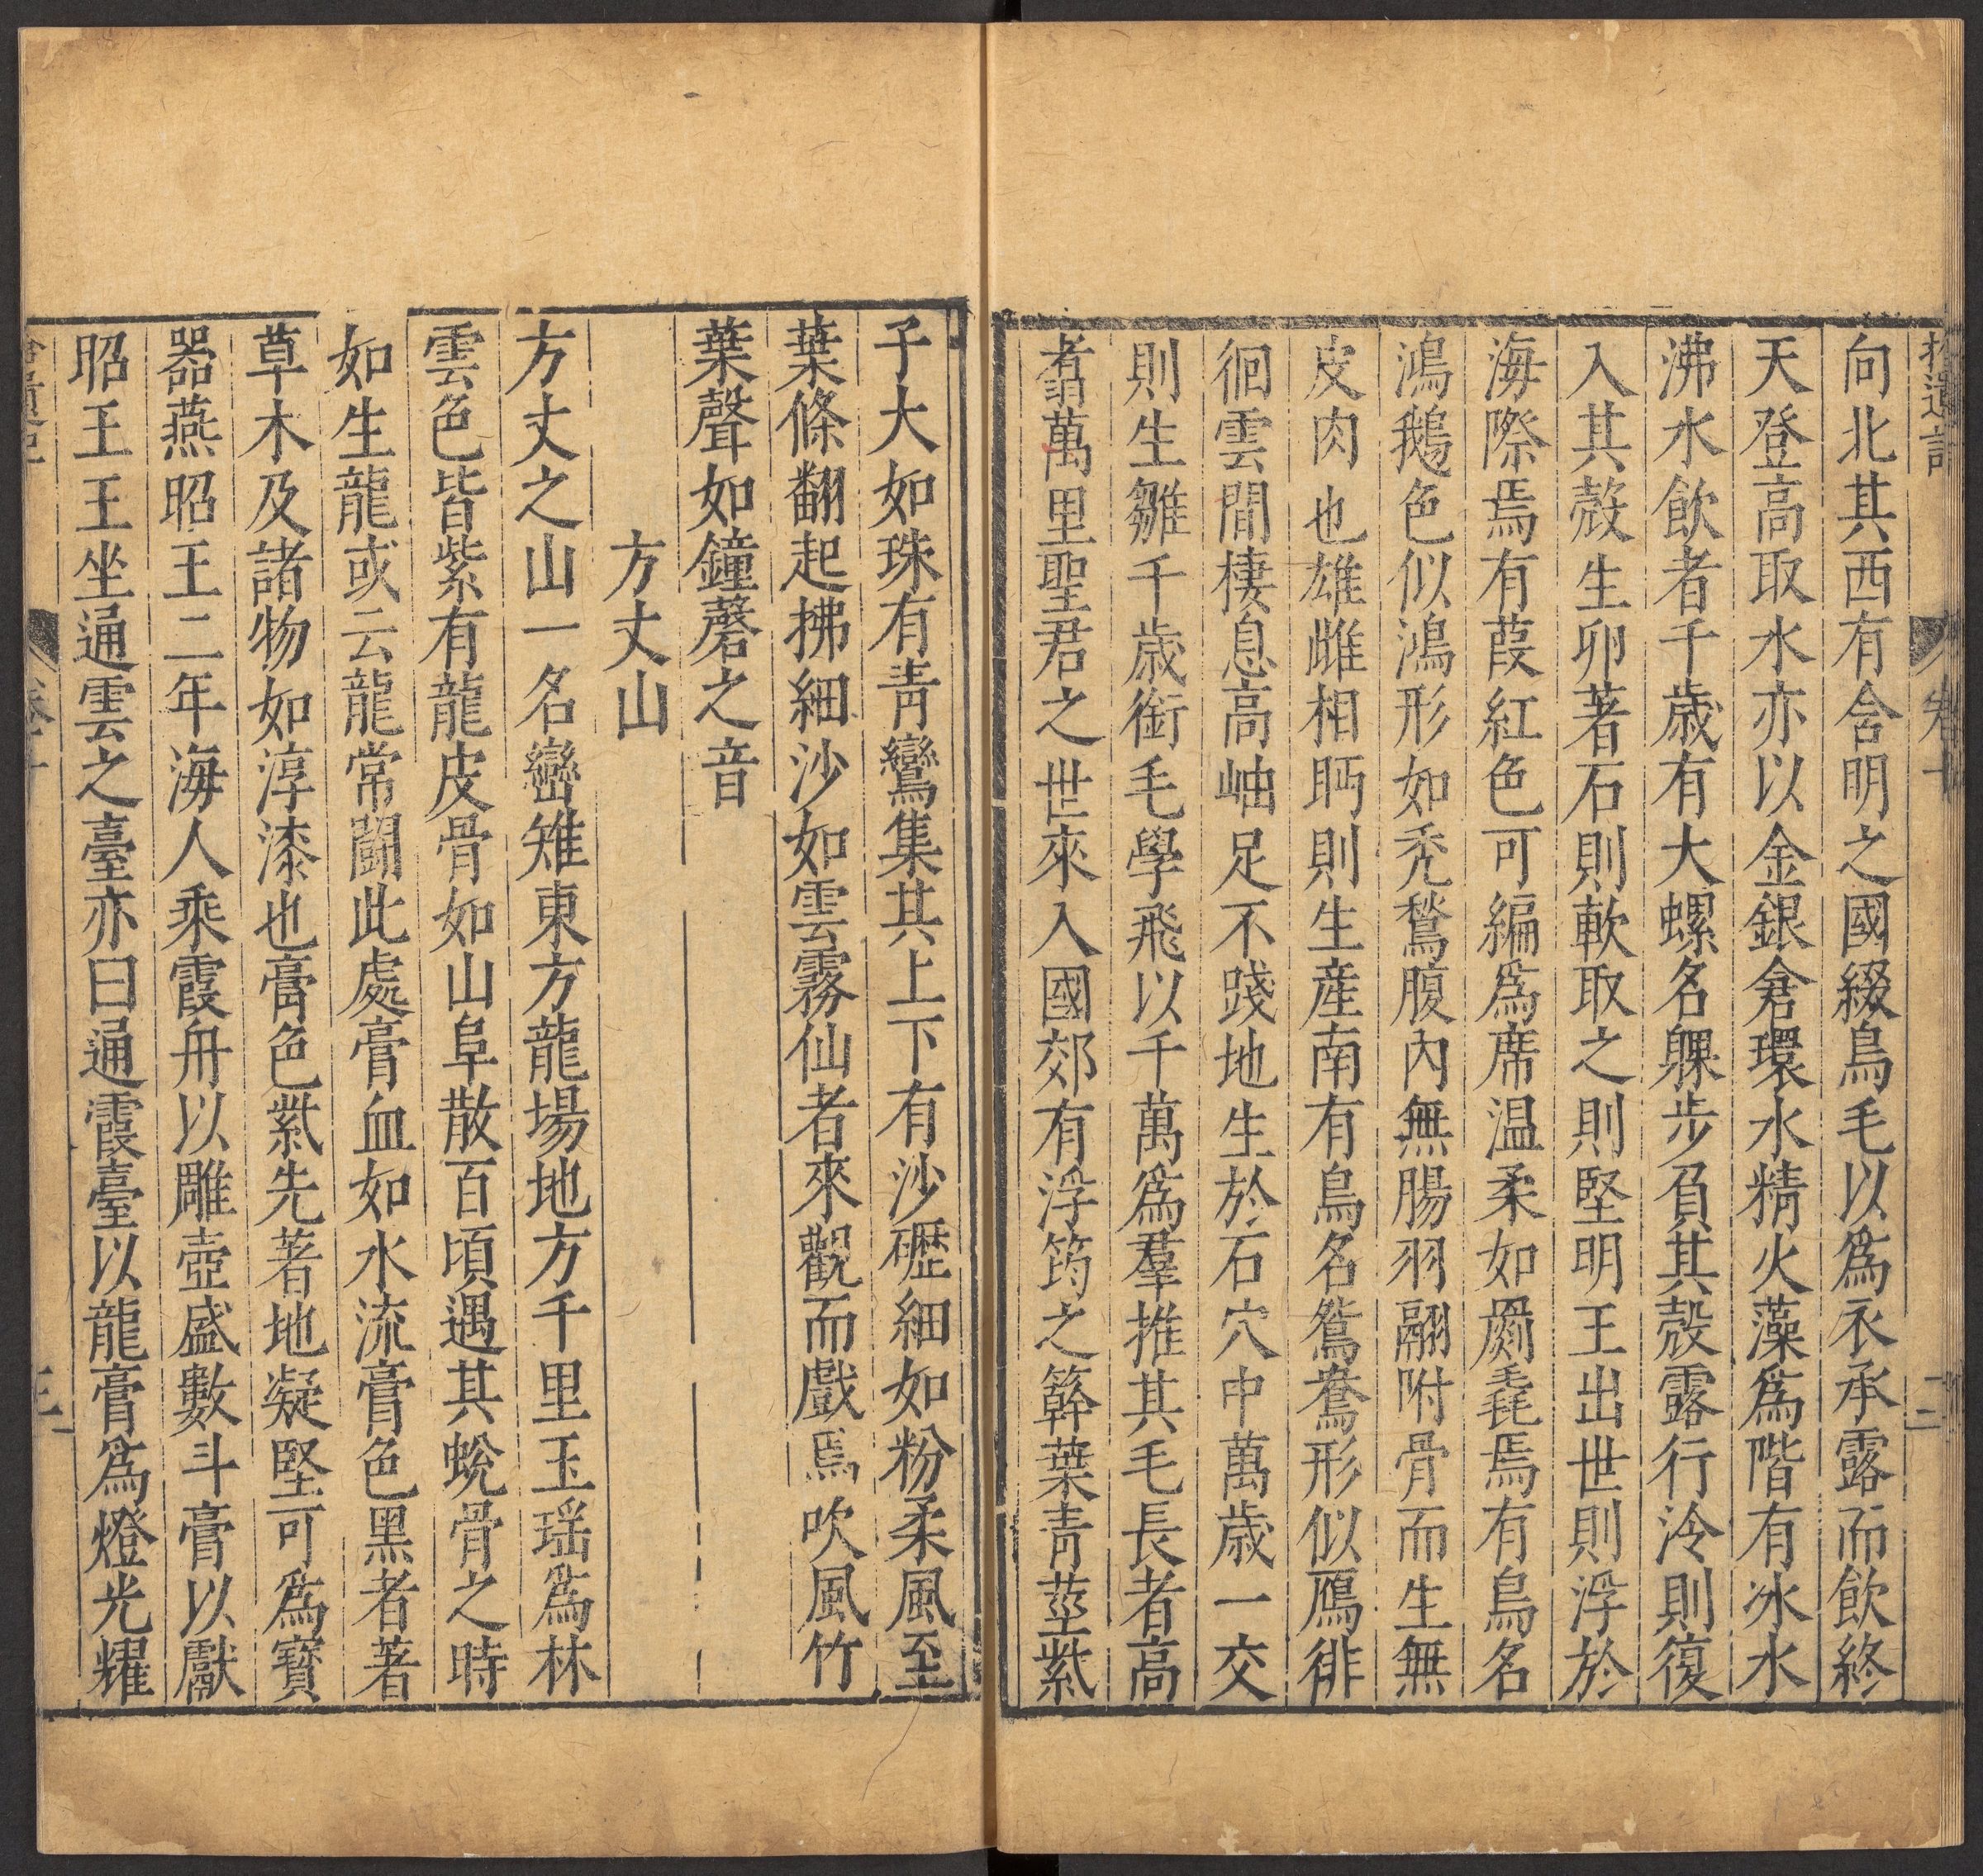 拾遺記 卷十 二
向北其西有含明之國綴鳥毛以爲衣承露而飲終
天登高取水亦以金銀倉環水精火藻爲階有冰水
沸水飲者千歲有大螺名躶步負其殼露行冷則復
入其殼生卵著石則軟取之則堅明王出世則浮於
海際焉有葭紅色可編爲席温柔如罽毳焉有鳥名
鴻鵝色似鴻形如禿鶖腹內無腸羽翮附骨而生無
皮肉也雄雌相眄則生産南有鳥名鴛鴦形似鴈徘
徊雲間棲息高岫足不踐地生於石穴中萬歲一交
則生雛千歲銜毛學飛以千萬爲羣推其毛長者高
翥萬里聖君之世來入國郊有浮筠之簳葉青莖紫
子大如珠有青鸞集其上下有沙礰細如粉柔風至
葉條翻起拂細沙如雲霧仙者來觀而戲焉吹風竹
葉聲如鐘磬之音
方丈山
方丈之山一名巒雉東方龍場地方千里玉瑶爲林
雲色皆紫有龍皮骨如山阜散百頃遇其蛻骨之時
如生龍或云龍常鬭此處膏血如水流膏色黑者著
草木及諸物如淳漆也膏色紫先著地凝堅可爲寶
器燕昭王二年海人乘霞舟以雕壺盛數斗膏以獻
昭王王坐通雲之臺亦曰通霞臺以龍膏爲燈光耀